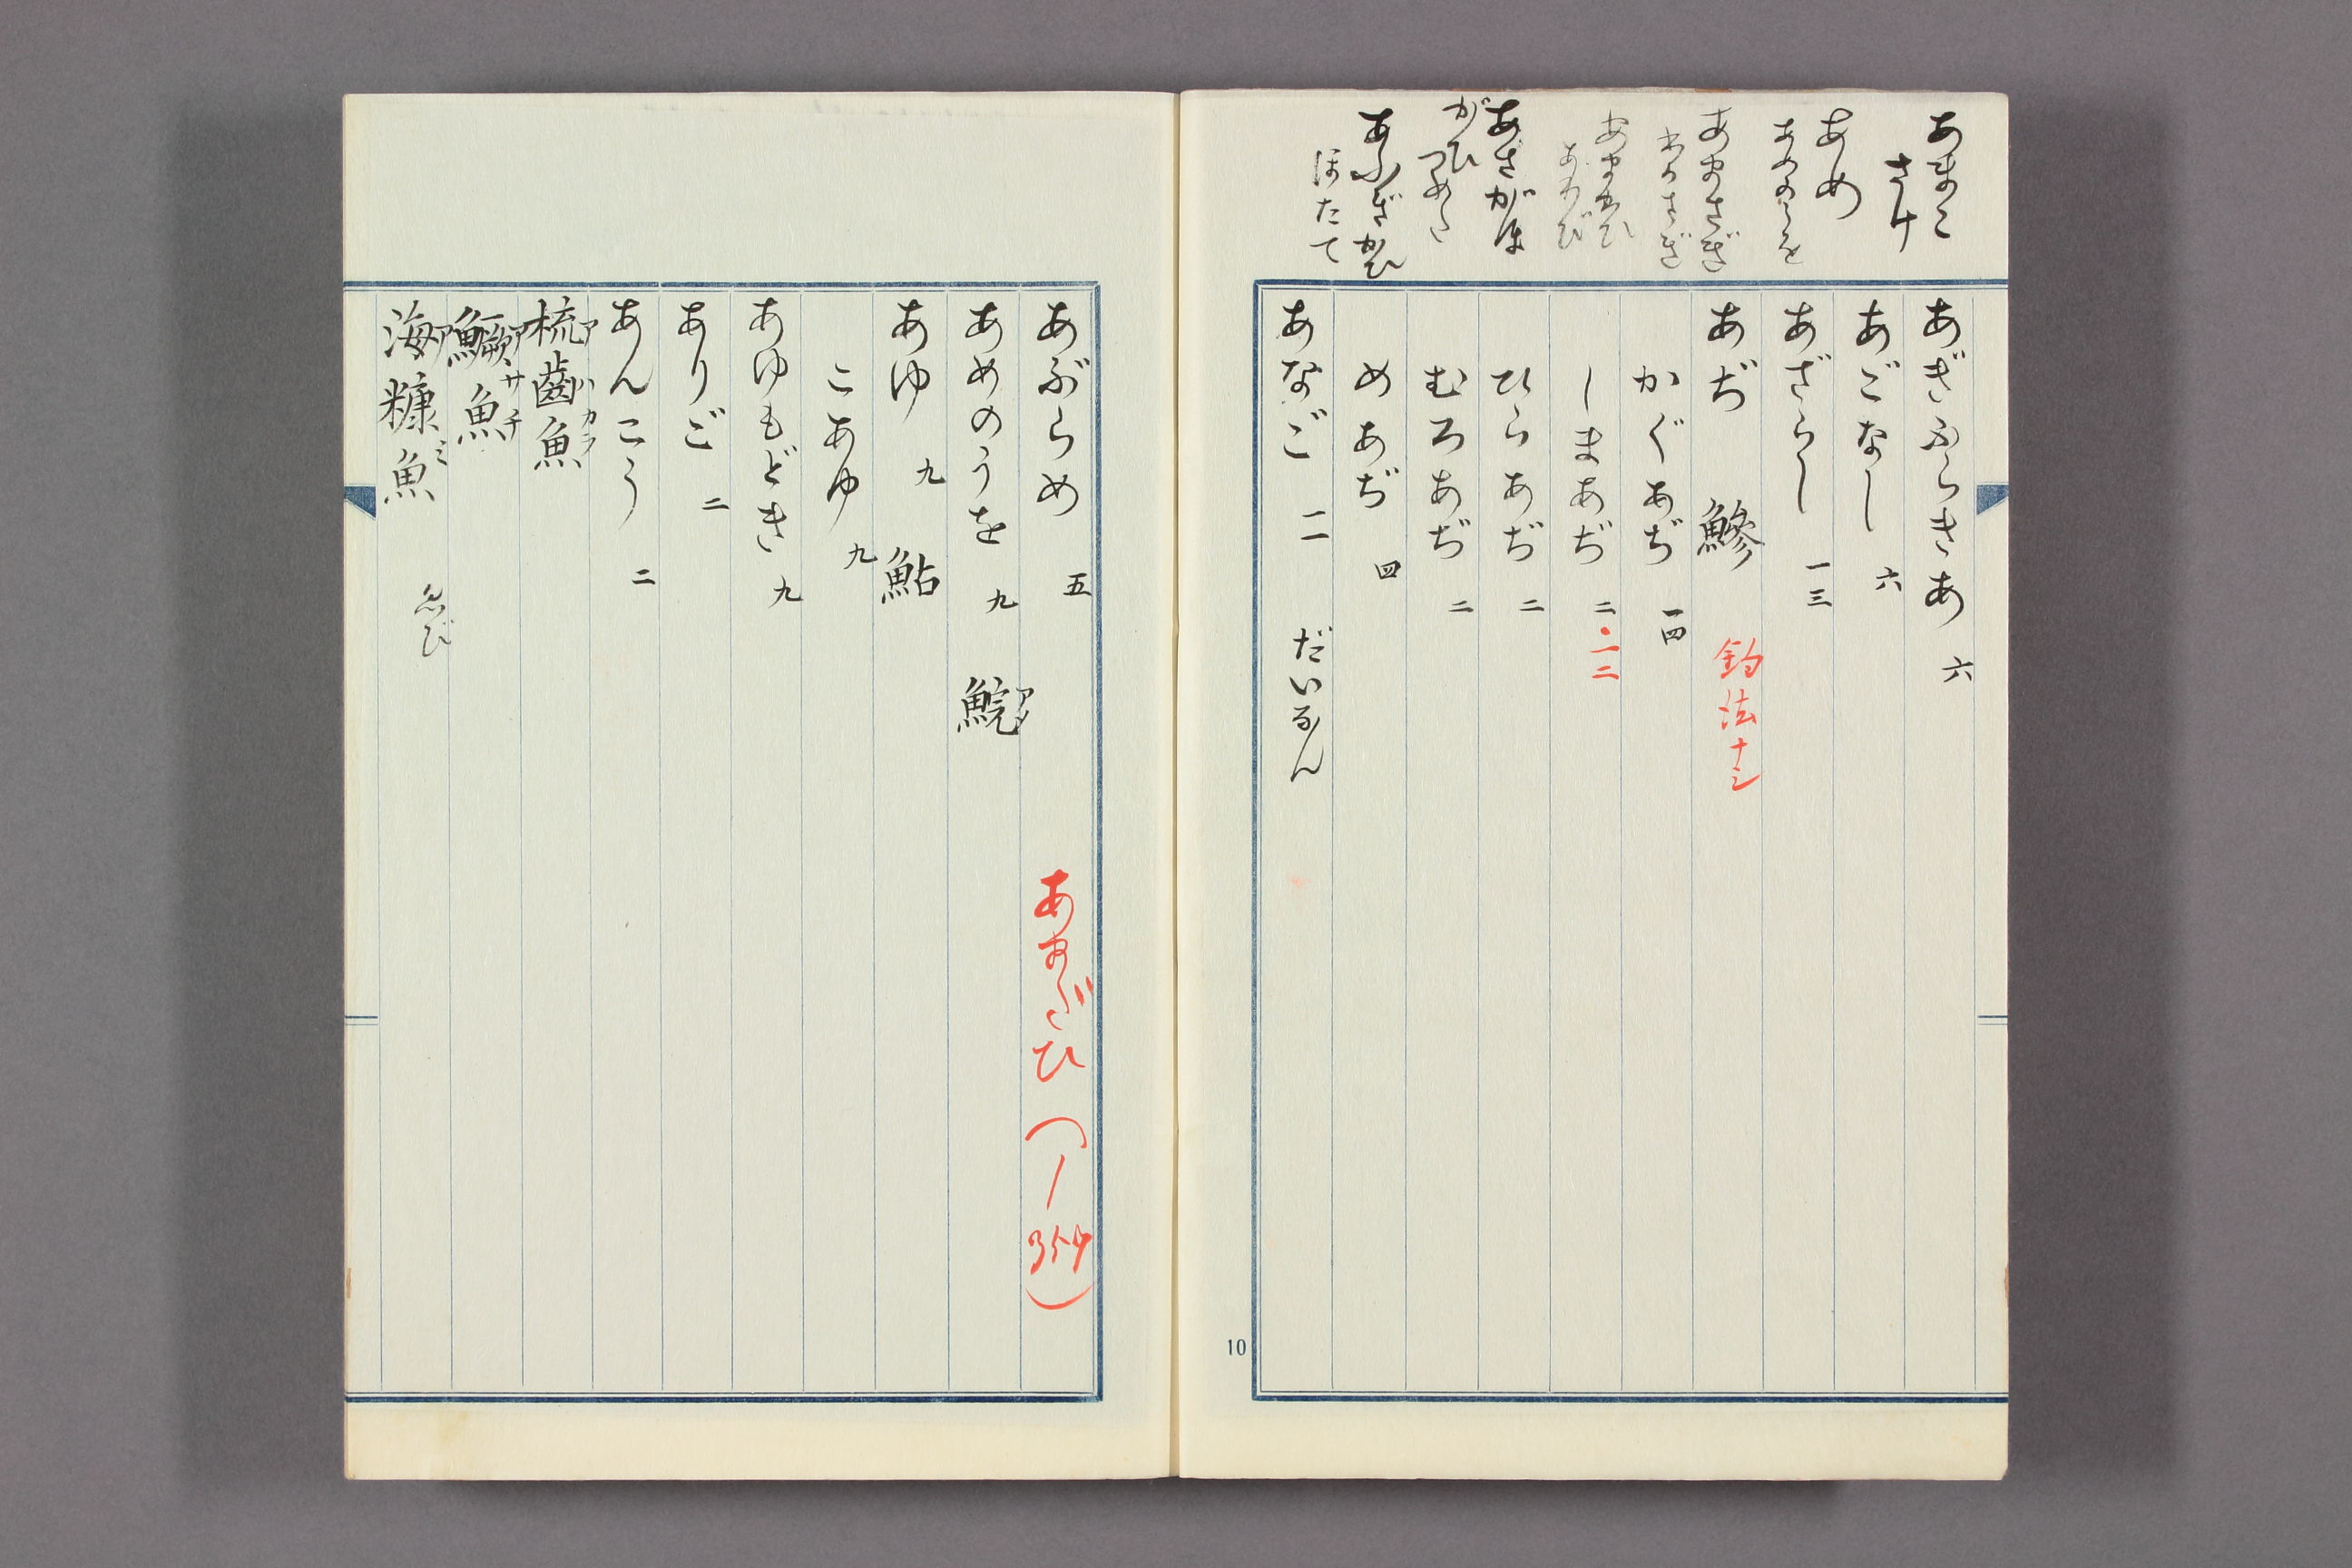 あまこ
さけ
あめ
あめのうを
あまさぎ
わかさぎ
あまがひ
あわび
あさがほ
がひ
つめた
あふぎかひ
ほたて
あぎふらきあ 六
あごなし 六
あざらし 一三
あぢ 鰺 釣法十三
かくあぢ 一四
しまあぢ 二・一二
ひらあぢ 二
むろあぢ 二
めあぢ 四
あなご 二 だいなん
10
あぶらめ 五
あめのうを 九 鯇 アメ
あゆ 九 鮎
こあゆ 九
あゆもどき 九
ありご 二
あんこう 二
梳齒魚 アハカラ
鱖魚 アサチ
海糠魚 アミ ゑび